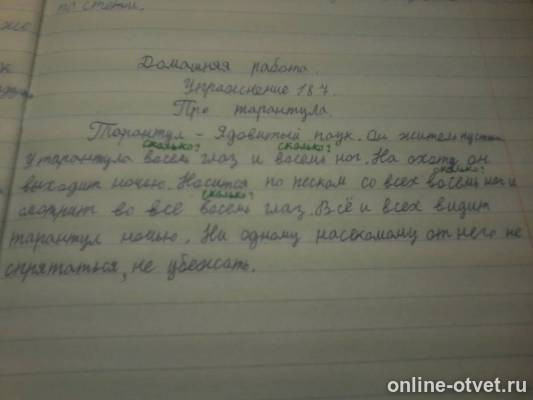 по степи.
Домашняя работа.
Упражнение 187.
Про тарантула.
Тарантул - Ядовитый паук. Он житель пустын
сколько? сколько?
У тарантула восемь глаз и восемь ног. На охоту он
сколько?
выходит ночью. Носится по пескам со всех восемь ног и
сколько?
смотрит во все восемь глаз. Всё и всех видит
тарантул ночью. Ни одному насекомому от него не
спрятаться, не убежать.
online-otvet.ru